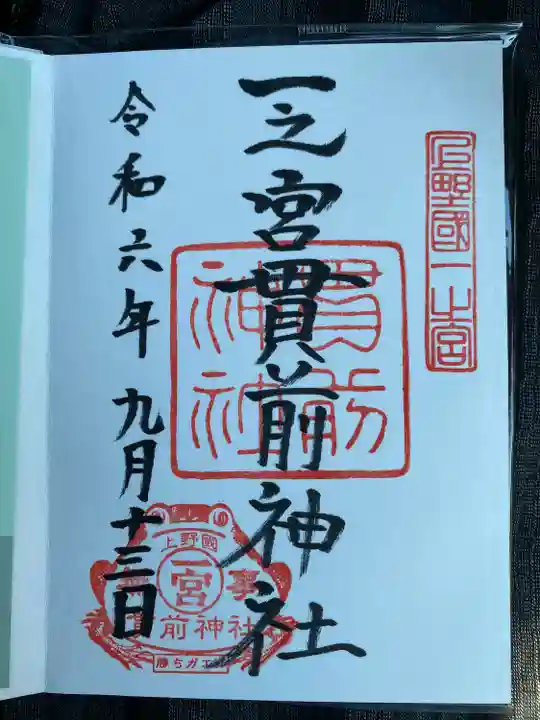 上野國一之宮
一之宮貫前神社
貫前
神社
令和六年九月十三日
上野國
一宮
事
前神社
勝ちガエル